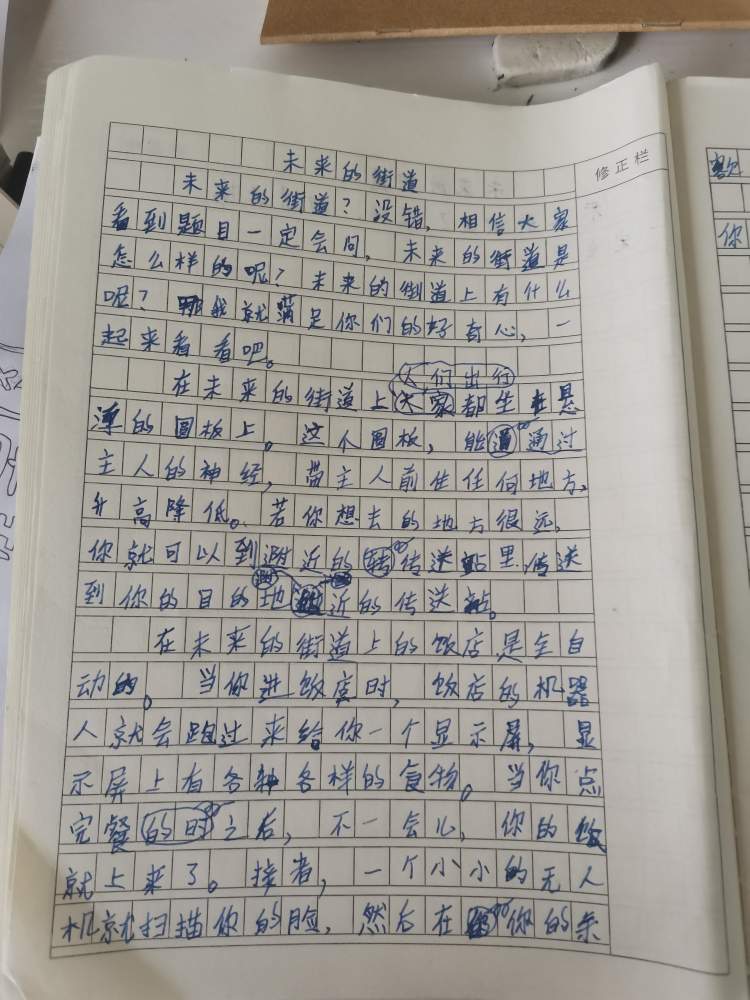 未来的街道
修正栏
未来的街道？没错，相信大家
看到题目一定会问，未来的街道是
怎么样的呢？未来的街道上有什么
呢？那我就满足你们的好奇心，一
起来看看吧。
人们出行
在未来的街道上大家都坐在悬
薄的圆板上。这个圆板，能通过
主人的神经，带主人前往任何地方，
升高降低。若你想去的地方很远，
你就可以到附近的转传送站里，传送
到你的目的地附近的传送站。
在未来的街道上的饭店是全自
动的。当你进饭店时，饭店的机器
人就会跑过来给你一个显示屏，显
示屏上有各种各样的食物。当你点
完餐的时之后，不一会儿，你的饭
就上来了。接着，一个小小的无人
机就扫描你的脸，然后在你的余
款
你